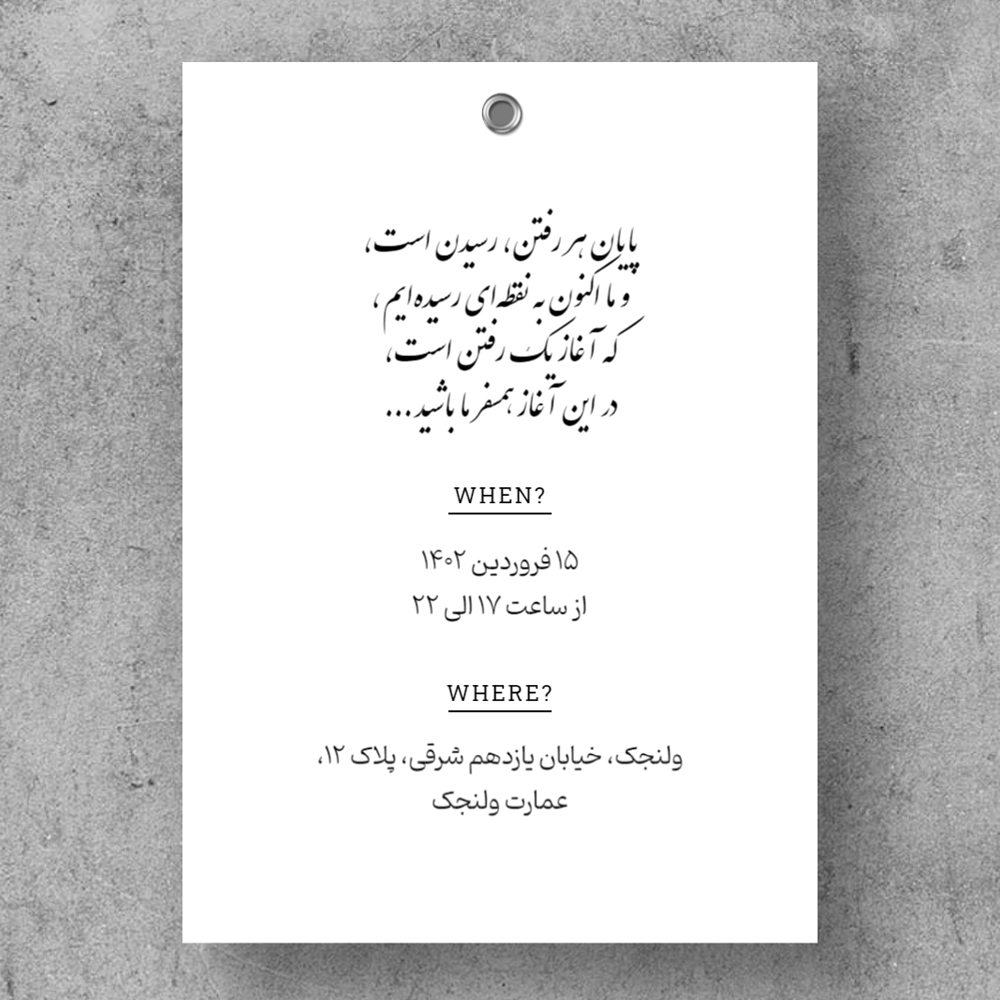 پایان هر رفتن، رسیدن است،
و ما اکنون به نقطه‌ای رسیده‌ایم،
که آغاز یک رفتن است،
در این آغاز همسفر ما باشید...
WHEN?
۱۵ فروردین ۱۴۰۲
از ساعت ۱۷ الی ۲۲
WHERE?
ولنجک، خیابان یازدهم شرقی، پلاک ۱۲،
عمارت ولنجک